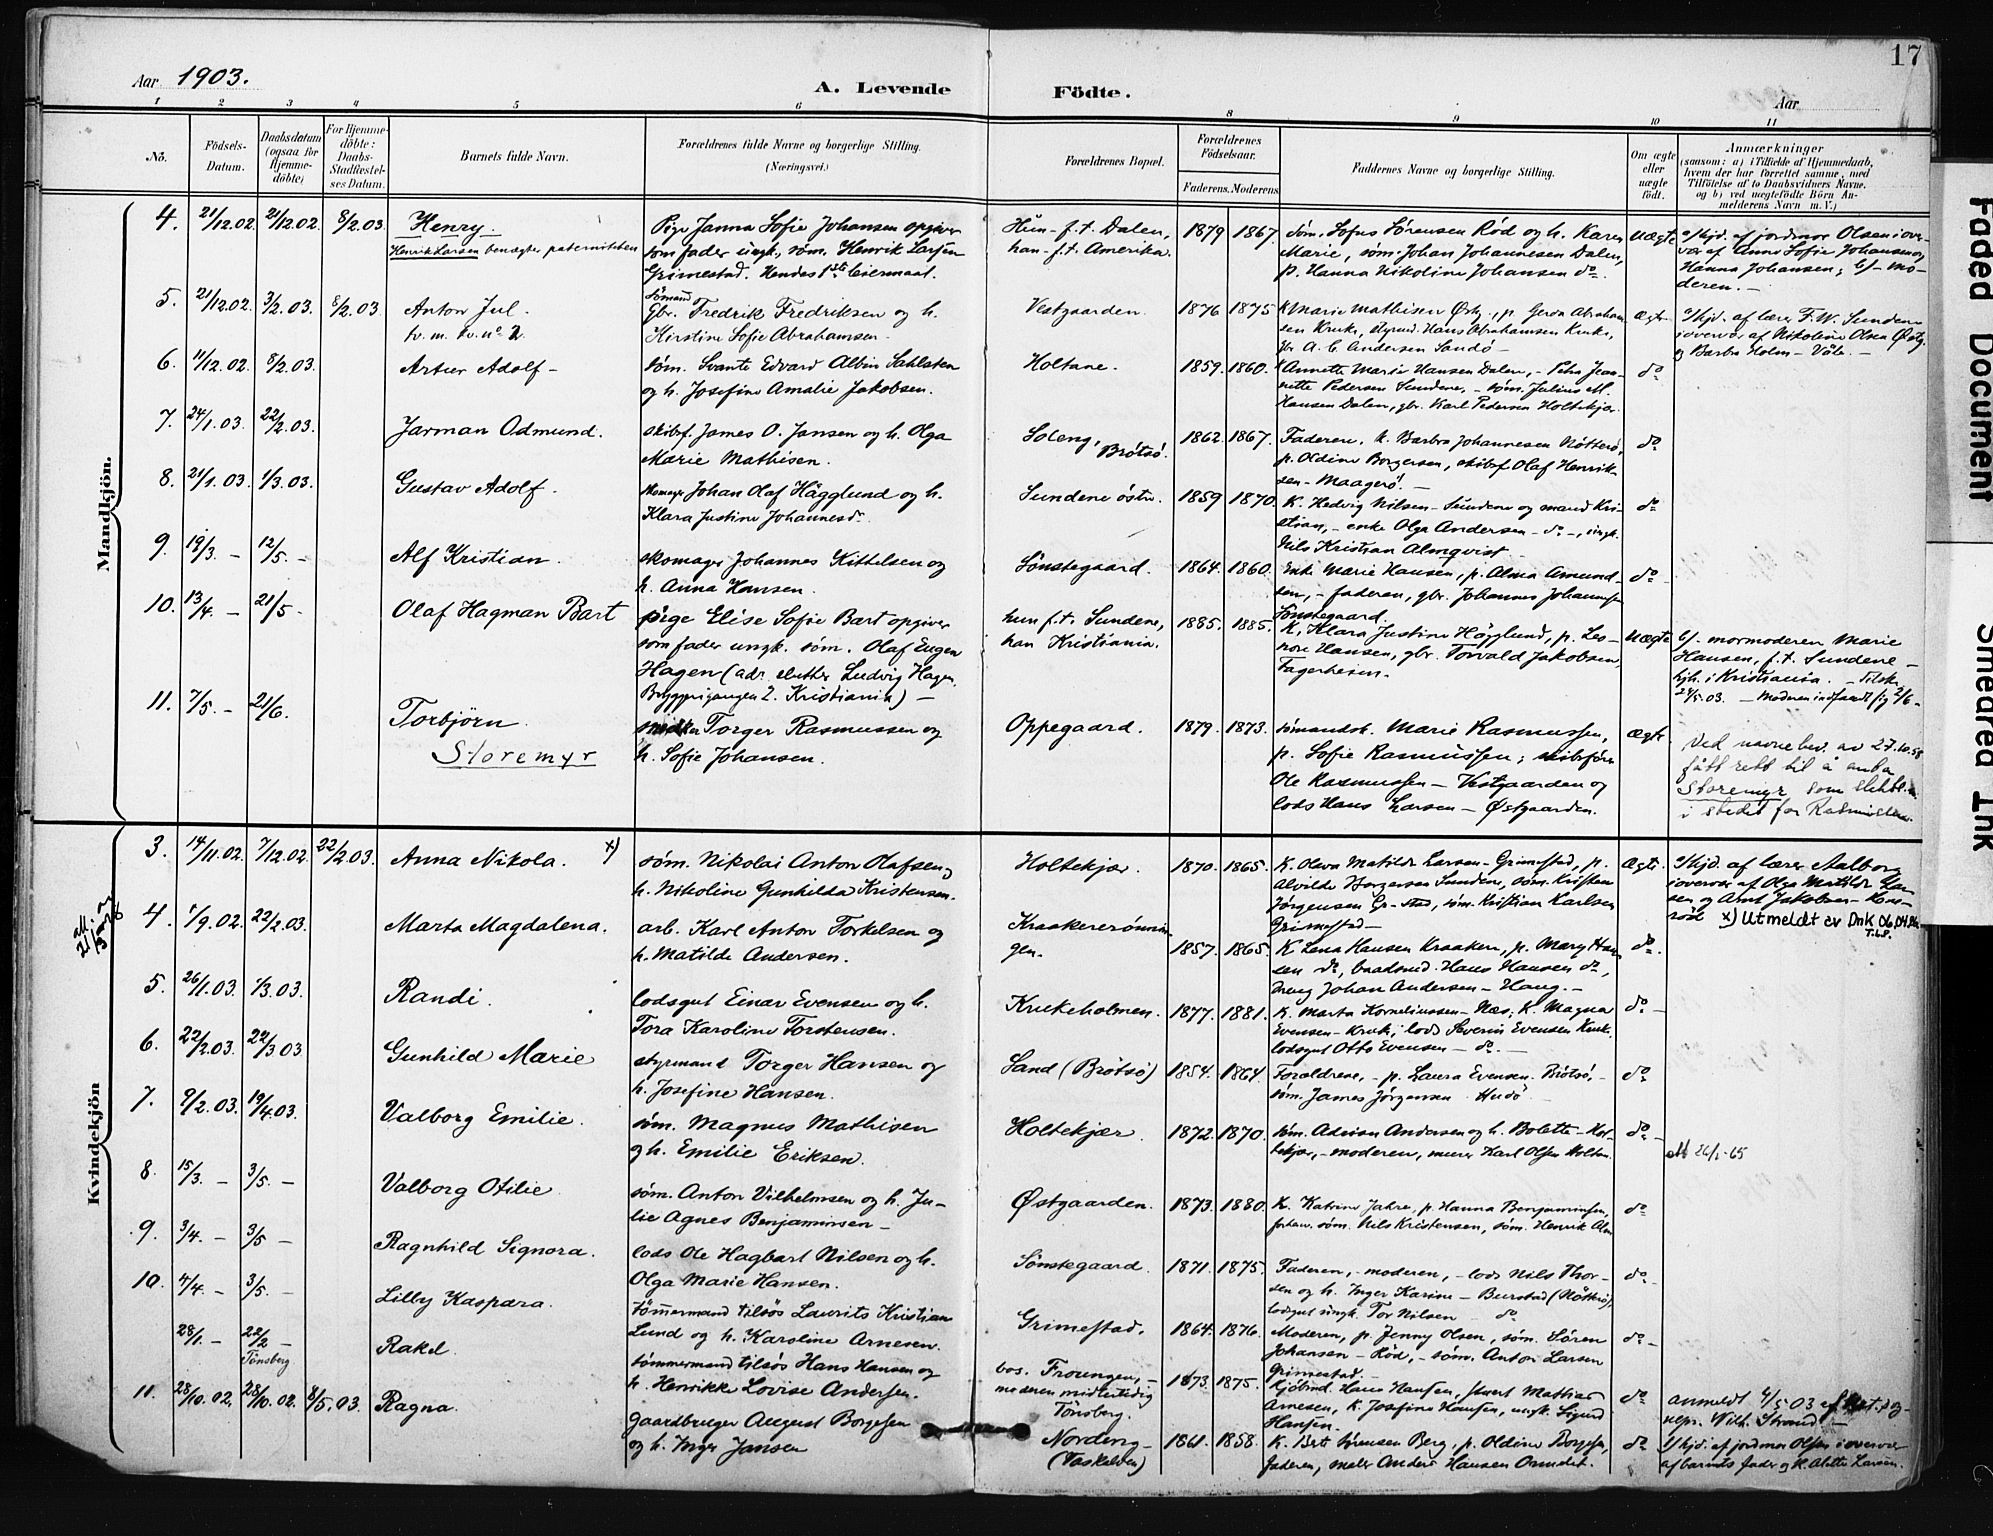 17
Aar 1903.
A. Levende Födte.
Aar
1 2 3 4 5 6 8 9 10 11
No.
Födsels-Datum.
Daabsdatum (ogsaa for Hjemme-döbte)
For Hjemme-döbte: Daabs-Stadfæstel-ses Datum.
Barnets fulde Navn.
Forældrenes fulde Navne og borgerlige Stilling.
(Næringsvei.)
Forældrenes Bopæl.
Forældrenes Födselsaar.
Faderens. Moderens
Faddernes Navne og borgerlige Stilling.
Om ægte eller uægte födt.
Anmærkninger
(saasom: a) i Tilfælde af Hjemmedaab,
hvem der har forrettet samme, med
Tilföielse af to Daabsvidners Navne.
og b) ved uægtefödte Börn An-
melderens Navn m. V.)
Mandkjön.
4. 21/12.02. 21/12.02. 8/2.03. Henry.
Henrik Larsen benægter paterniteten
Pige Janna Sofie Johansen opgiver
som fader ungk. søm. Henrik Larsen
Grimestad. Hendes 1ste leiermaal.
Hun - f.t. Dalen,
han - f.t. Amerika.
1879 1867.
Søm. Sofus Sörensen Röd og h. Karen
Marie, søm. Johan Johannesen Dalen,
p. Hanna Nikoline Johansen do.
Uægte
a/ hjd. af jordmor Olsen i over-
vær af Anne Sofie Johansen og
Hanna Johansen; b/- mo-
deren. -
5. 21/12.02. 3/2.03. 8/2.03. Anton Jul.
tv. m. kv. no 2.
Sömand
Gbr. Fredrik Fredriksen og h.
Kirstine Sofie Abrahamsen.
Vestgaarden.
1876 1875
K Marie Mathisen Østg., p. Gerda Abraham
sen Kruke, styrmd. Hans Abrahamsen Kruke,
gbr A. C. Andersen Sandö -
ægte
a/ hjd. af lærer F. W. Sundene
i overvær af Nikoline Olsen Østg.
og Barbra Holm - Våle. -
6. 11/12.02. 8/2.03. Artur Adolf -
søm. Svante Edvard Albin Sahlsten
og h. Josefine Amalie Jakobsen.
Holtane.
1859. 1860.
Annette Marie Hansen Dalen, - Petra Jean-
nette Pedersen Sundene, - søm. Julius M.
Hansen Dalen, gbr. Karl Pedersen Holtekjær.
do
7. 24/1.03. 22/2.03. Jarman Odmund.
skibsf. James O. Jansen og h. Olga
Marie Mathisen.
Soleng, Brötsö.
1862. 1867.
Faderen, k. Barbra Johannesen Nötterö,
p. Oldine Borgersen, skibsf Olaf Henrik-
sen - Maagerö. -
do
8. 21/1.03. 1/3.03. Gustav Adolf.
skomager Johan Olaf Hägglund og h.
Klara Justine Johannesd.
Sundene östre.
1859 1870.
K. Hedvig Nilsen - Sundene og mand Kri-
stian, - enke Olga Andersen - do -, ungk.
Nils Kristian Almqvist
do
9. 19/3. - 12/5. - Alf Kristian.
skomager Johannes Kittelsen og
h. Anna Hansen.
Sönstegaard.
1864. 1860.
Enke Marie Hansen, p. Alma Amund-
sen, - faderen, gbr. Johannes Johannesen
Sönstegaard.
do
10. 13/4. - 21/5. - Olaf Hagman Bart
pige Elise Sofie Bart opgiver
som fader ungk. søm. Olaf Eugen
Hagen (adr. slutter Ludvig Hagen,
Bryggerigangen 2. Kristiania) -
hun f.t. Sundene,
han Kristiania.
1885. 1885.
K. Klara Justine Hägglund, p. Les-
nore Hansen, gbr. Torvald Jakobsen,
Fagerheim.
Uægte
b/- mormoderen Marie
Hansen, f.t. Sundene -
hjh. i Kristiania. - Tilsk.
24/5.03. - Moderen indfandt sig 2/6 -
11. 7/5. - 21/6. Torbjörn.
Storemyr
Torger Rasmussen og
h. Sofie Johansen.
Oppegaard.
1879. 1873.
sömandsk. Marie Rasmussen,
p. Sofie Rasmussen; skibsförer
Ole Rasmussen - Vestgaarden og
lods Hans Larsen - Østgaarden.
ægte
Ved navnebev. av 27.10.58
fått rett til å anta
Storemyr som slektsn.
i stedet for Rasmussen.
Kvindekjön
3. 14/11.02. 7/12.02. 22/2.03. Anna Nikola. x)
søm. Nikolai Anton Olafsen,
h. Nikoline Gunhilda Kristensen.
Holtekjær.
1870. 1865.
K. Olava Matilde Larsen - Grimestad, p.
Alvilde Borgersen Sunden, søm. Kristen
Jörgensen Gr-stad, søm. Kristian Karlsen
Grimestad -
Ægte.
a/ hjd. af lærer Aalborg
i overvær af Olga Matilde Lar-
sen og Arnt Jakobsen -
röd x) Utmeldt av DnK 06.04.86
T.G.P.
att
4. 1/9.02. 22/2.03. Marta Magdalena.
arb. Karl Anton Torkelsen og
h. Matilde Andersen.
Kraakererönnin-
gen.
1857. 1865.
K Lena Hansen Kraaken, p. Mary Han-
sen do, baadsmd. Hans Hansen do,
Johan Andersen - Haug. -
do.
5. 26/1.03. 1/3.03. Randi.
lodsgut Einar Evensen og h.
Tora Karoline Torstensen.
Krukeholmen.
1877. 1881.
K. Marta Korneliussen - Næs, K. Magna
Evensen - Kruk, lods Severin Evensen Kruk
lodsgut Otto Evensen - do. -
do -
6. 22/2.03. 22/3 03. Gunhild Marie
styrmand Torger Hansen og
h. Josefine Hansen.
Sand (Brötsö)
1854. 1864
Foraldrene, - p. Laura Evensen. Brötsö, -
søm. James Jørgensen Hudö
do -
7. 9/2.03. 19/4.03. Valborg Emilie.
søm. Magnus Mathisen
og h. Emilie Eriksen.
Holtekjær.
1872. 1870.
søm. Adrian Andersen og h. Bolette - Hol-
tekjær, - moderen, murer Karl Olsen Holtan.
do -
att 26/1-65
8. 15/3. - 3/5. - Valborg Otilie.
søm. Anton Vilhelmsen og h. Ju-
lie Agnes Benjaminsen -
Østgaarden.
1873. 1880.
K. Katrine Jahre, p. Hanna Benjaminsen,
søm. Nils Kristensen, søm. Henrik
do
9. 3/4. - 3/5 - Ragnhild Signora.
lods Ole Hagbart Nilsen og h.
Olga Marie Hansen.
Sönstegaard.
1871. 1875.
Faderen, - moderen, - lods Nils Thor-
sen og h. Inger Karine - Buerstad (Nötterö),
lodsgut ungk. Tor Nilsen - do
do -
10. 4/4. - 3/5. - Lilly Kaspara.
tömmermand tilsös Laurits Kristian
Lund og h. Karoline Arnesen.
Grimestad.
1864. 1876.
Moderen, p. Jenny Olsen, søm. Sören
Johansen - Röd, - søm. Anton Larsen
Grimestad. -
do -
28/1. - 22/2 - Tönsberg Rakel.
tömmermand tilsös Hans Hansen og
h. Henrikke Lovise Andersen.
bos. Froungen, -
moderen midlertidig
Tönsberg.
1873. 1875.
Kjöbmd. Hans Hansen, Mathias
Arnesen, K. Josefine Hansen, ungk. Sigurd
Hansen.
do
anmeldt 4/5 03 af
Wilh. Strand -
11. 28/10.02. 28/10.02. 8/5.03. Ragna.
gaardbruger August Borgesen
og h. Inger Jansen
Nordeng -
1861. 1858.
K. Berte Sörensen Berg, p. Oldine Borgesen,
faderen, maler André Hansen Ormelet.
do
a/ hjd. af jordmor Olsen i overvær
af barnets fader og K. Alette Larsen.
Faded Document
Smeared Ink